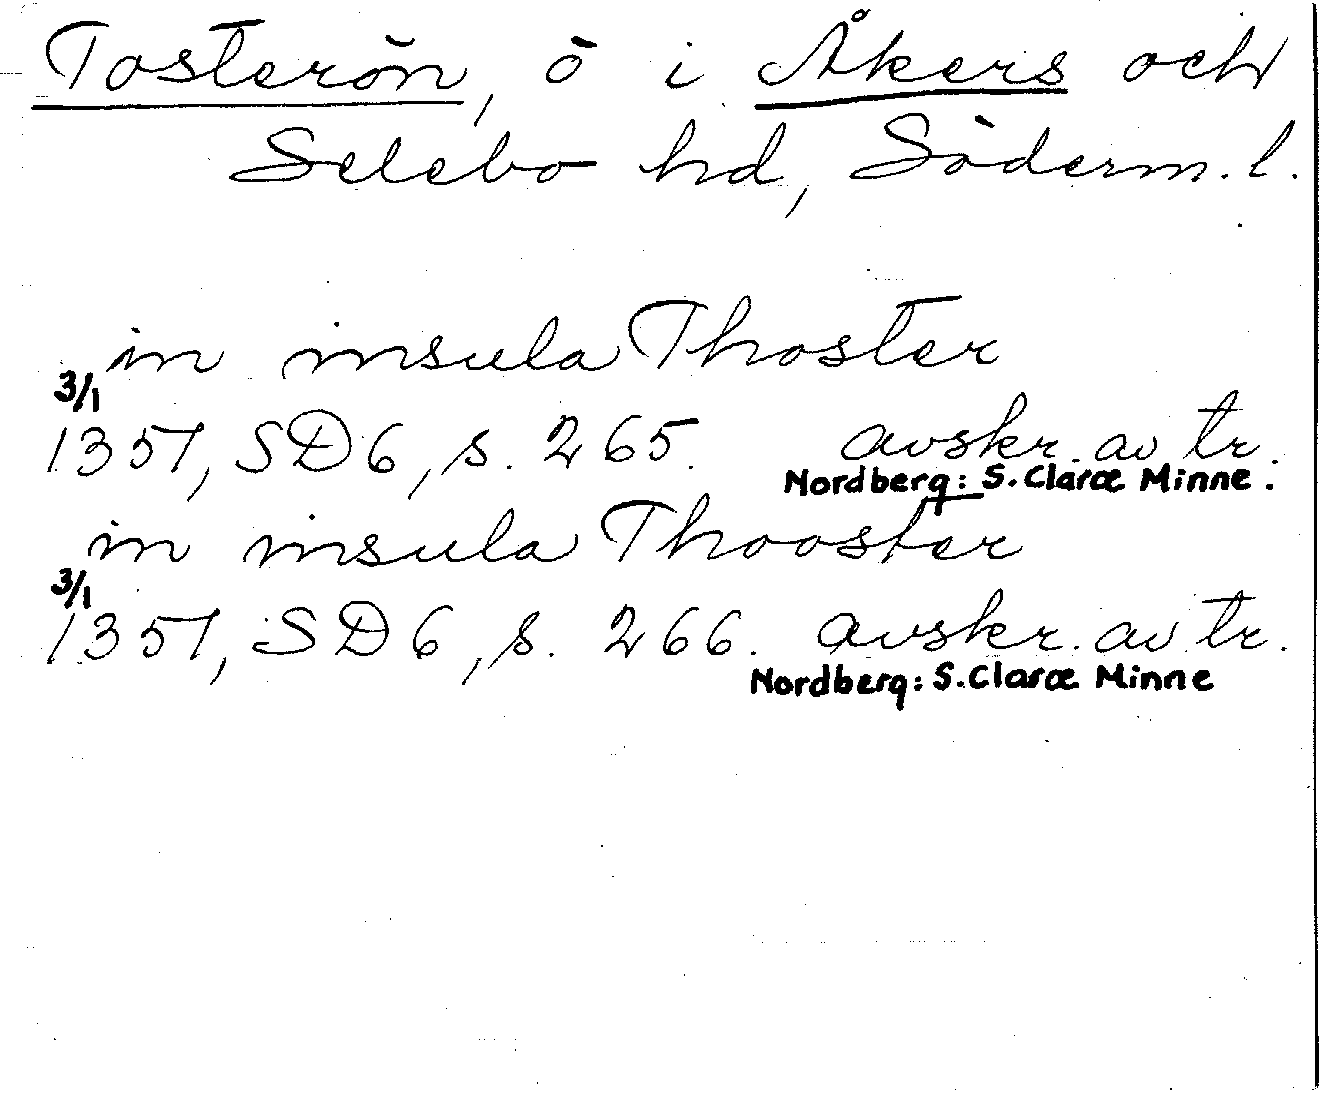 Tosterön, ö i Åkers och
Selebo hd, Söderm. l.
in insula Thoster
3/1
1351, SD6, s. 265. avskr. av tr.
Nordberg: S. Claræ Minne.
in insula Thooster
3/1
1351, SD6, s. 266. avskr. av tr.
Nordberg: S. Claræ Minne